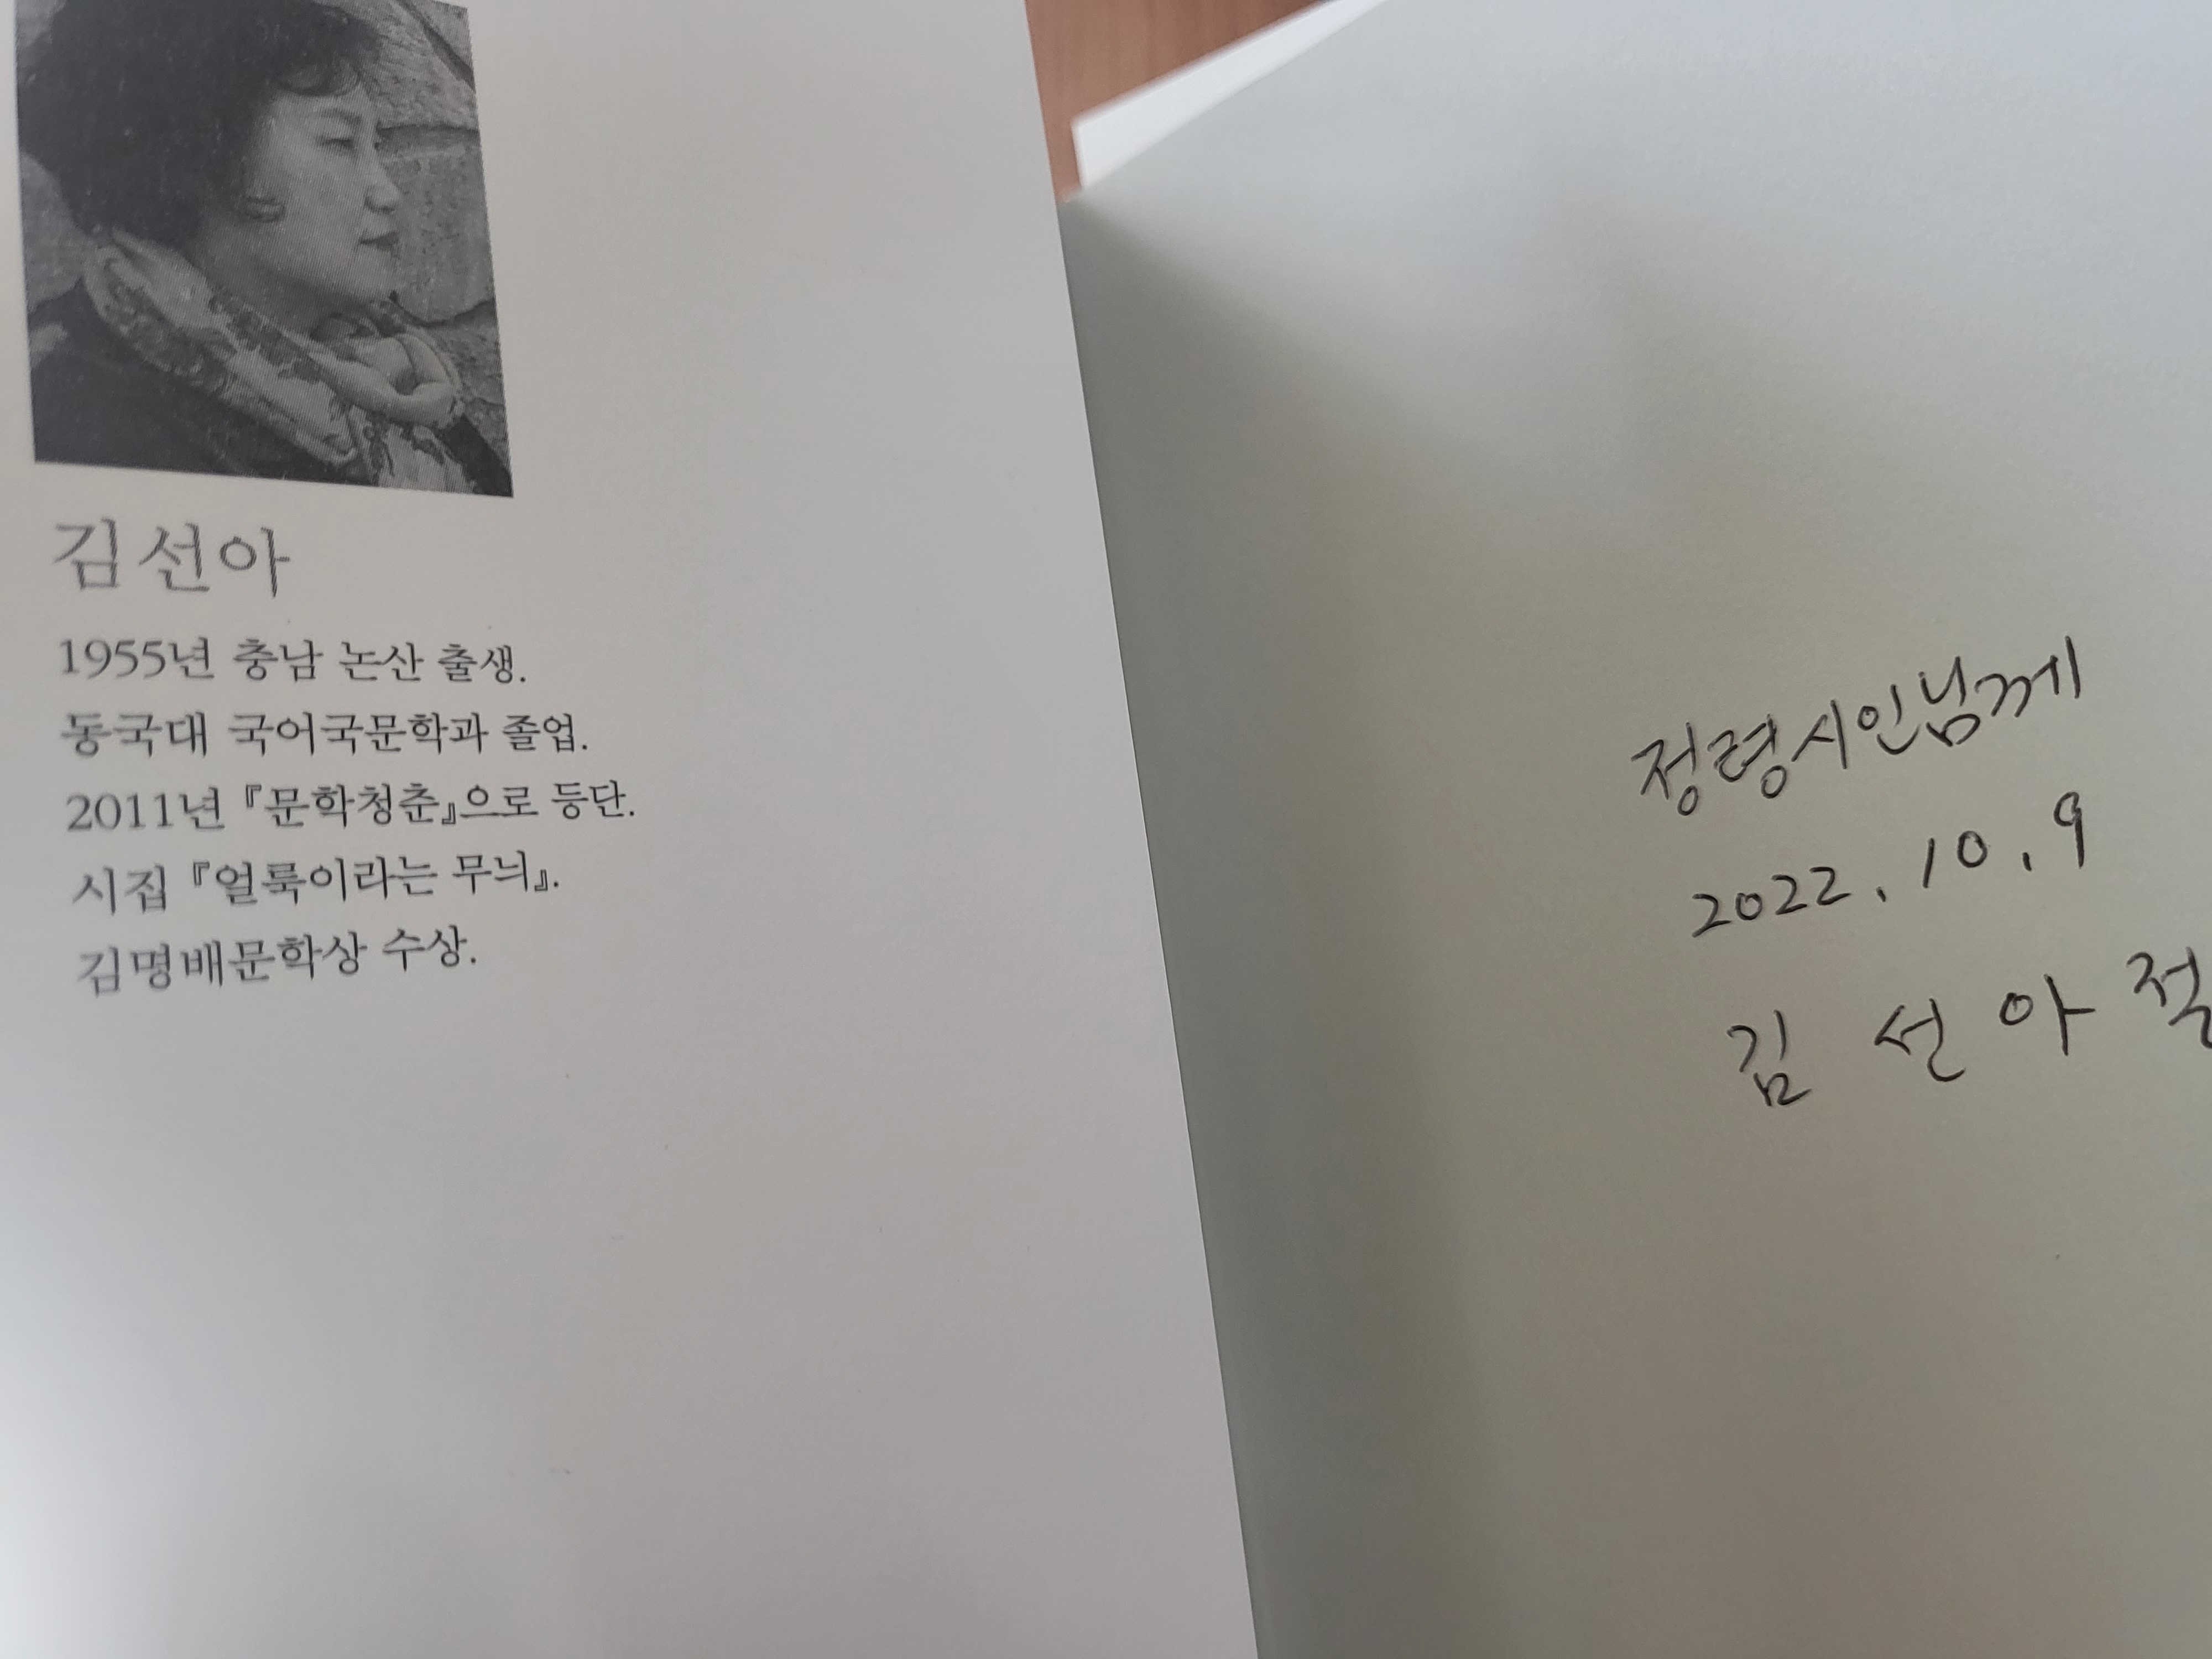 김선아
1955년 충남 논산 출생.
동국대 국어국문학과 졸업.
2011년 『문학청춘』으로 등단.
시집 『얼룩이라는 무늬』.
김명배문학상 수상.
정령시인님께
2022. 10. 9
김 선 아